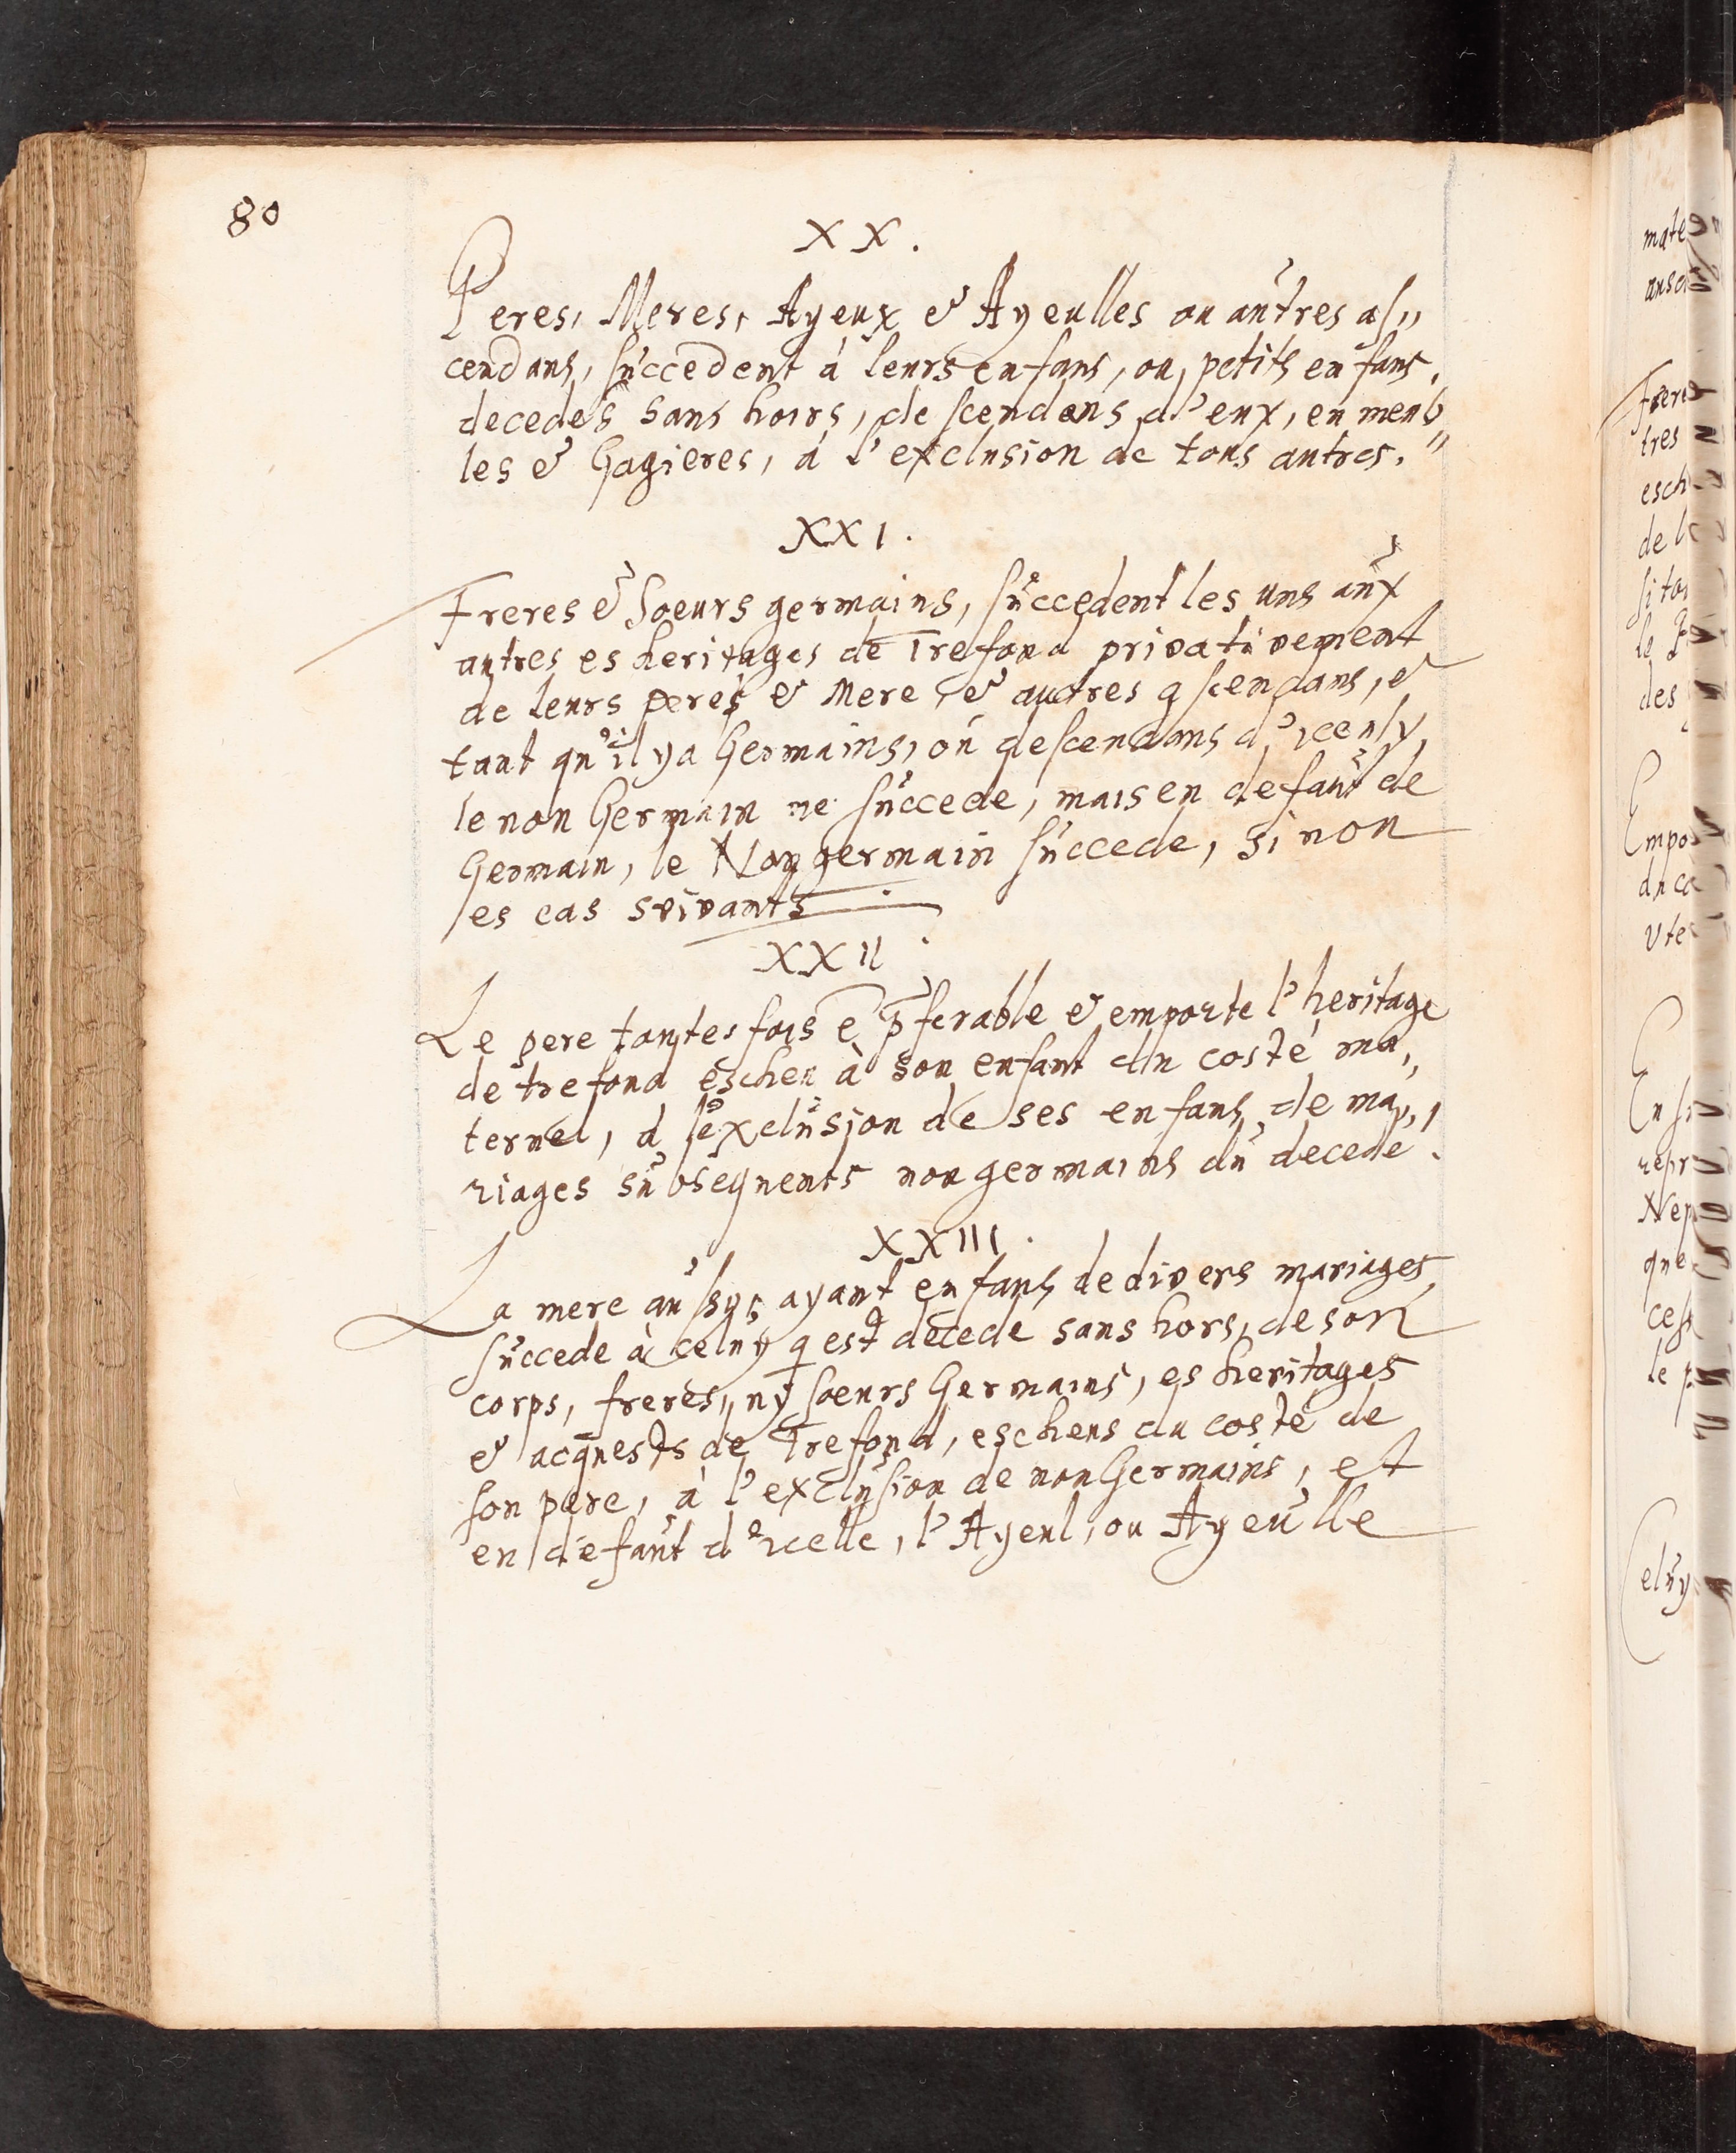 80
XX.
Peres, Meres, Ayeux & Ayeulles ou autres as„
cendans, succedent à leurs enfans, ou petits enfans,
decedes sans hoirs, descendans d'eux, en meub„
les & Gagieres, à l'exclusion de tous autres.
XXI.
Freres & soeurs germains, succedent les uns aux
autres es heritages de Trefond privativement
de leurs peres & Mere, & autres ascendans, &
tant qu'il y a Germains, ou descendans d'iceulx,
le non Germain ne succede, mais en defaut de
Germain, le Non germain succede, si non
es cas suivants.
XXII.
Le pere toutesfois e p̄ferable & emporte l'heritage
de trefond escheu à son enfant du costé ma„
ternel, à l'exclusion de ses enfans de ma„
riages subsequents non germains du decedé.
XXIII.
La mere aussy, ayant enfans de divers mariages,
succede à celuy q̄ est decede sans hors, de son
corps, freres, ny soeurs Germains, es heritages
& acquests de Trefond, escheus du costé de
son pere, à l'exclusion de non Germains, et
en defaut d'icelle, l'Ayeul, ou Ayeulle
mate
Frere
tres
esch
de l
si to
des
Empo
du ca
Ute
repr
Nep
que
Celuy